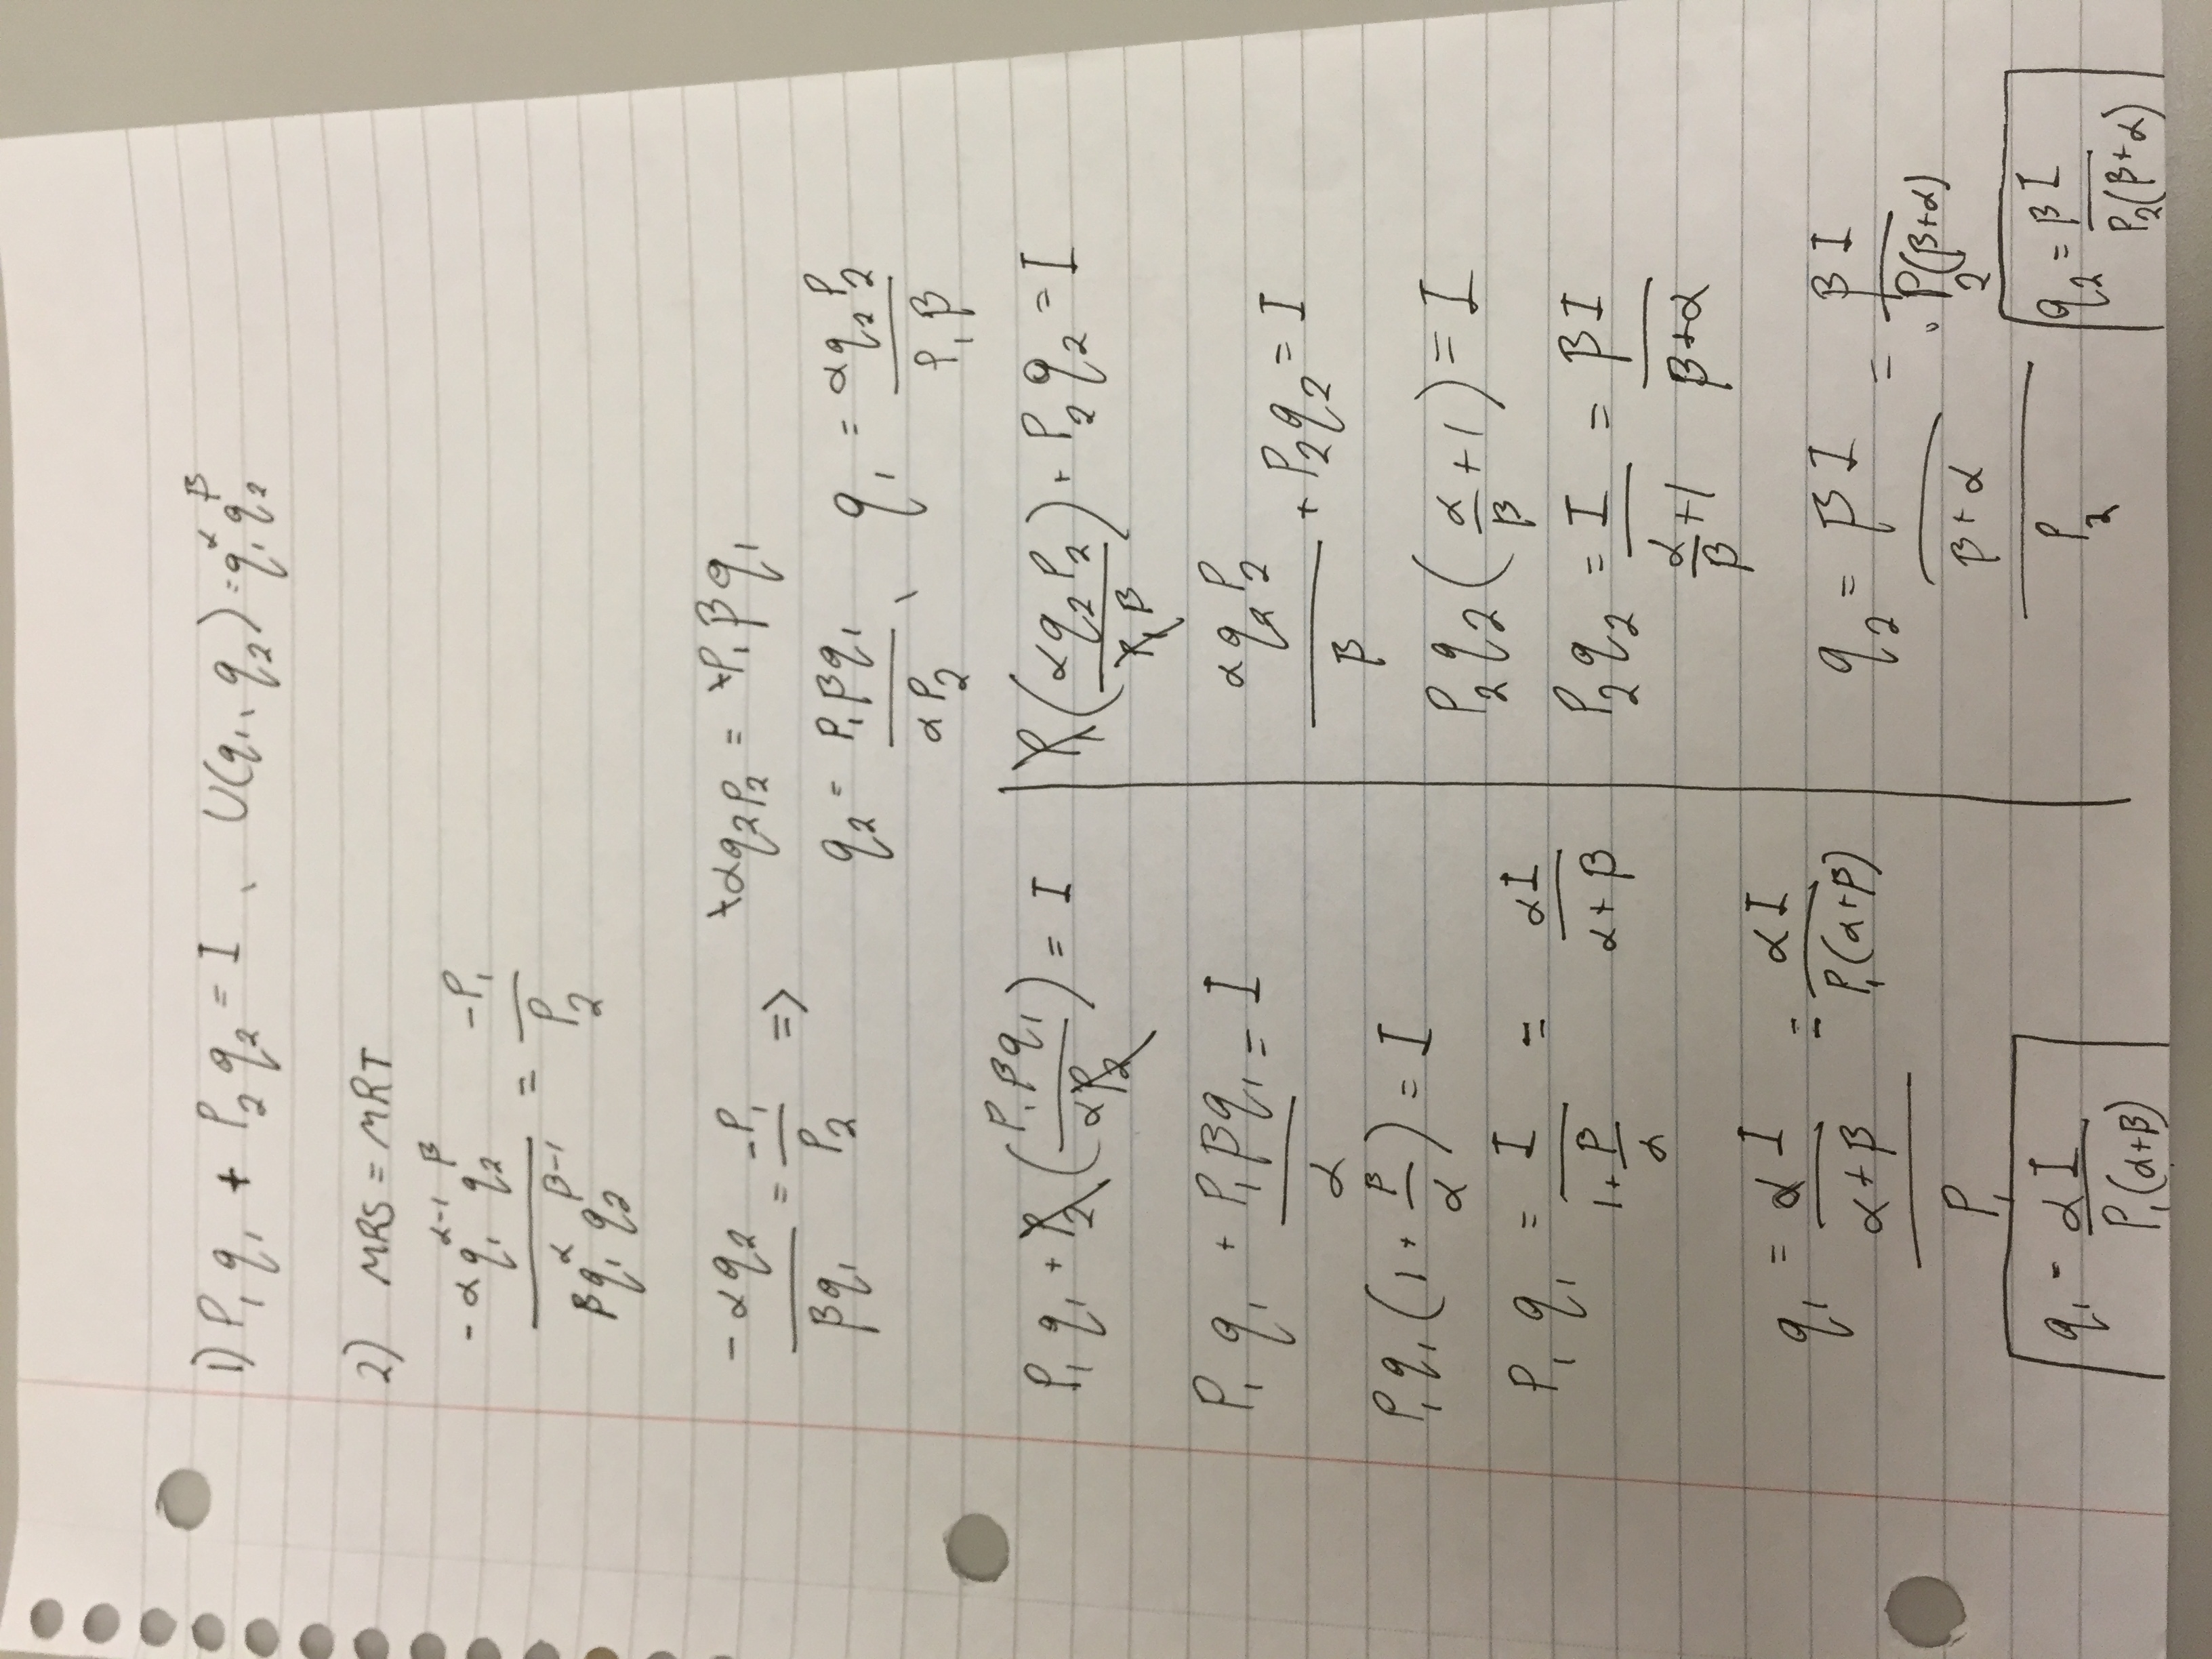 1) P₁ q₁ + P₂ q₂ = I , U(q₁, q₂) = q₁^α q₂^β
2) MRS = MRT
(-α q₁^(α-1) q₂^β) / (β q₁^α q₂^(β-1)) = -P₁ / P₂
-α q₂ / (β q₁) = -P₁ / P₂ => +α q₂ P₂ = +P₁ β q₁
q₂ = P₁ β q₁ / (α P₂) , q₁ = α q₂ P₂ / (P₁ β)
P₁ q₁ + P₂ (P₁ β q₁ / (α P₂)) = I
P₁ q₁ + P₁ β q₁ / α = I
P₁ q₁ (1 + β/α) = I
P₁ q₁ = I / (1 + β/α) = α I / (α + β)
q₁ = (α I / (α + β)) / P₁ = α I / (P₁ (α + β))
q₁ = α I / (P₁ (α + β))
P₁ (α q₂ P₂ / (P₁ β)) + P₂ q₂ = I
α q₂ P₂ / β + P₂ q₂ = I
P₂ q₂ (α/β + 1) = I
P₂ q₂ = I / (α/β + 1) = β I / (β + α)
q₂ = (β I / (β + α)) / P₂ = β I / (P₂ (β + α))
q₂ = β I / (P₂ (β + α))